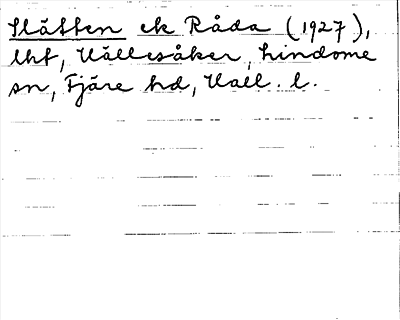 Slätten ek Råda (1927),
lht, Hällesåker, Lindome
sn, Fjäre hd, Hall. l.